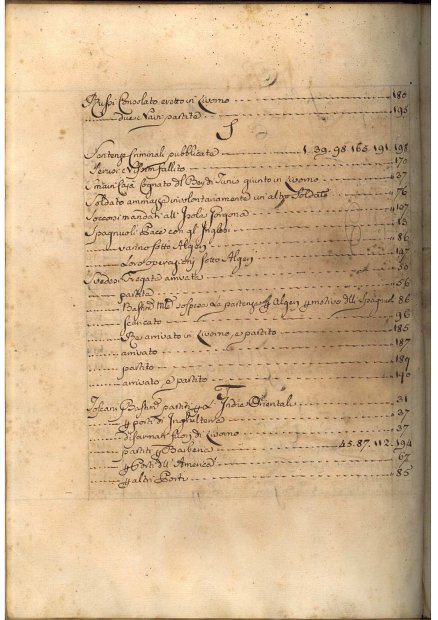 Russi Consolato eretto in Livorno 180
due Navi partite 195
S
Sentenze Criminali pubblicate 1. 39. 98. 165. 191. 198
fallito 170
Legato del Bey di Tunis giunto in Livorno 37
Soldato ammazza involontariamente un altro Soldato 76
Soccorsi mandati all' Isole Gorgona 107
Spagnuoli Pace con gl' Inglesi 15
vanno sotto Algeri 86
Loro operazioni sotto Algeri 147
Svedesi Fregate arrivate 50
partite 56
Bastimti sospesa la partenza p Algeri p motivo dell Spagnuoli 86
scaricato 96
Re arrivato in Livorno, e partito 185
arrivato 187
partito 189
arrivato, e partito 190
T
Toscani Bastimti partiti p l' Indie Orientali 31
p porti di Inghilterra 37
disarmati fuori di Livorno 37
partiti p Barberia 45. 87. 112. 194
p Porti dell' America 67
p altri Porti 85